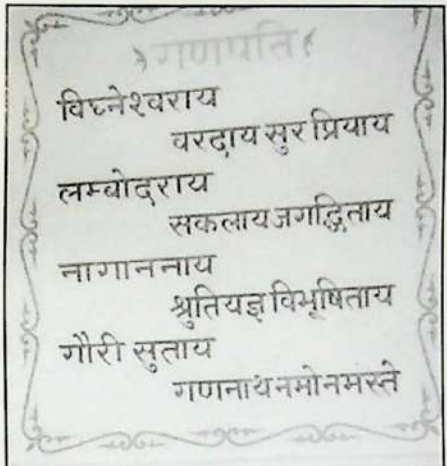 गणपति
विघ्नेश्वराय
वरदाय सुर प्रियाय
लम्बोदराय
सकलाय जगद्धिताय
नागाननाय
श्रुतियज्ञ विभूषिताय
गौरी सुताय
गणनाथ नमो नमस्ते